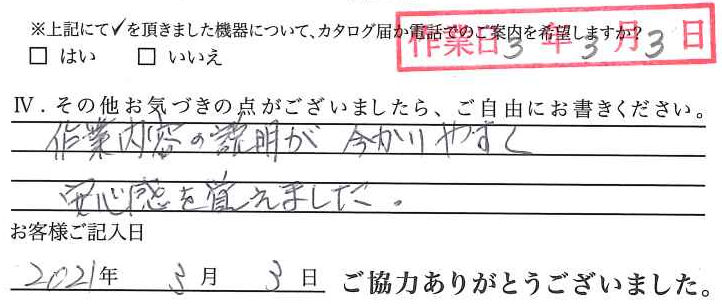 ※上記にて✓を頂きました機器について、カタログ届か電話でのご案内を希望しますか?
作業日 3 年 3 月 3 日
□ はい □ いいえ
Ⅳ．その他お気づきの点がございましたら、ご自由にお書きください。
作業内容の説明が 分かりやすく
安心感を覚えました。
お客様ご記入日
2021年 3 月 3 日 ご協力ありがとうございました。